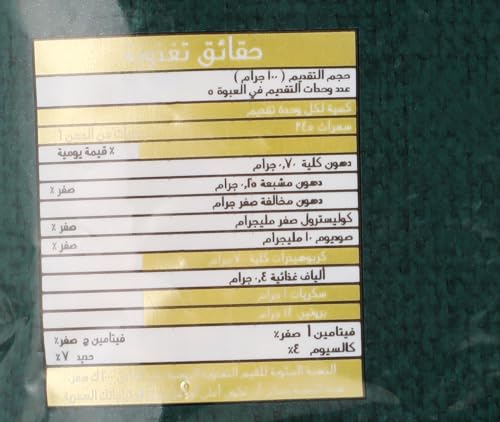 حقائق تغذوية
حجم التقديم ( ١٠٠ جرام )
عدد وحدات التقديم في العبوة ٥
كمية لكل وحدة تقديم
سعرات ٢٤٥
٪ قيمة يومية
دهون كلية ٠,٧٠ جرام
دهون مشبعة ٠,٢٥ جرام صفر ٪
دهون مخالفة صفر جرام
كوليسترول صفر مليجرام صفر ٪
صوديوم ١٠ مليجرام صفر ٪
كربوهيدرات كلية ٧ جرام
ألياف غذائية ٠,٤ جرام
سكريات ١ جرام
بروتين ١٢ جرام
فيتامين أ صفر٪ فيتامين ج صفر٪
كالسيوم ٤٪ حديد ٧٪
النسبة المئوية للقيم التغذوية اليومية